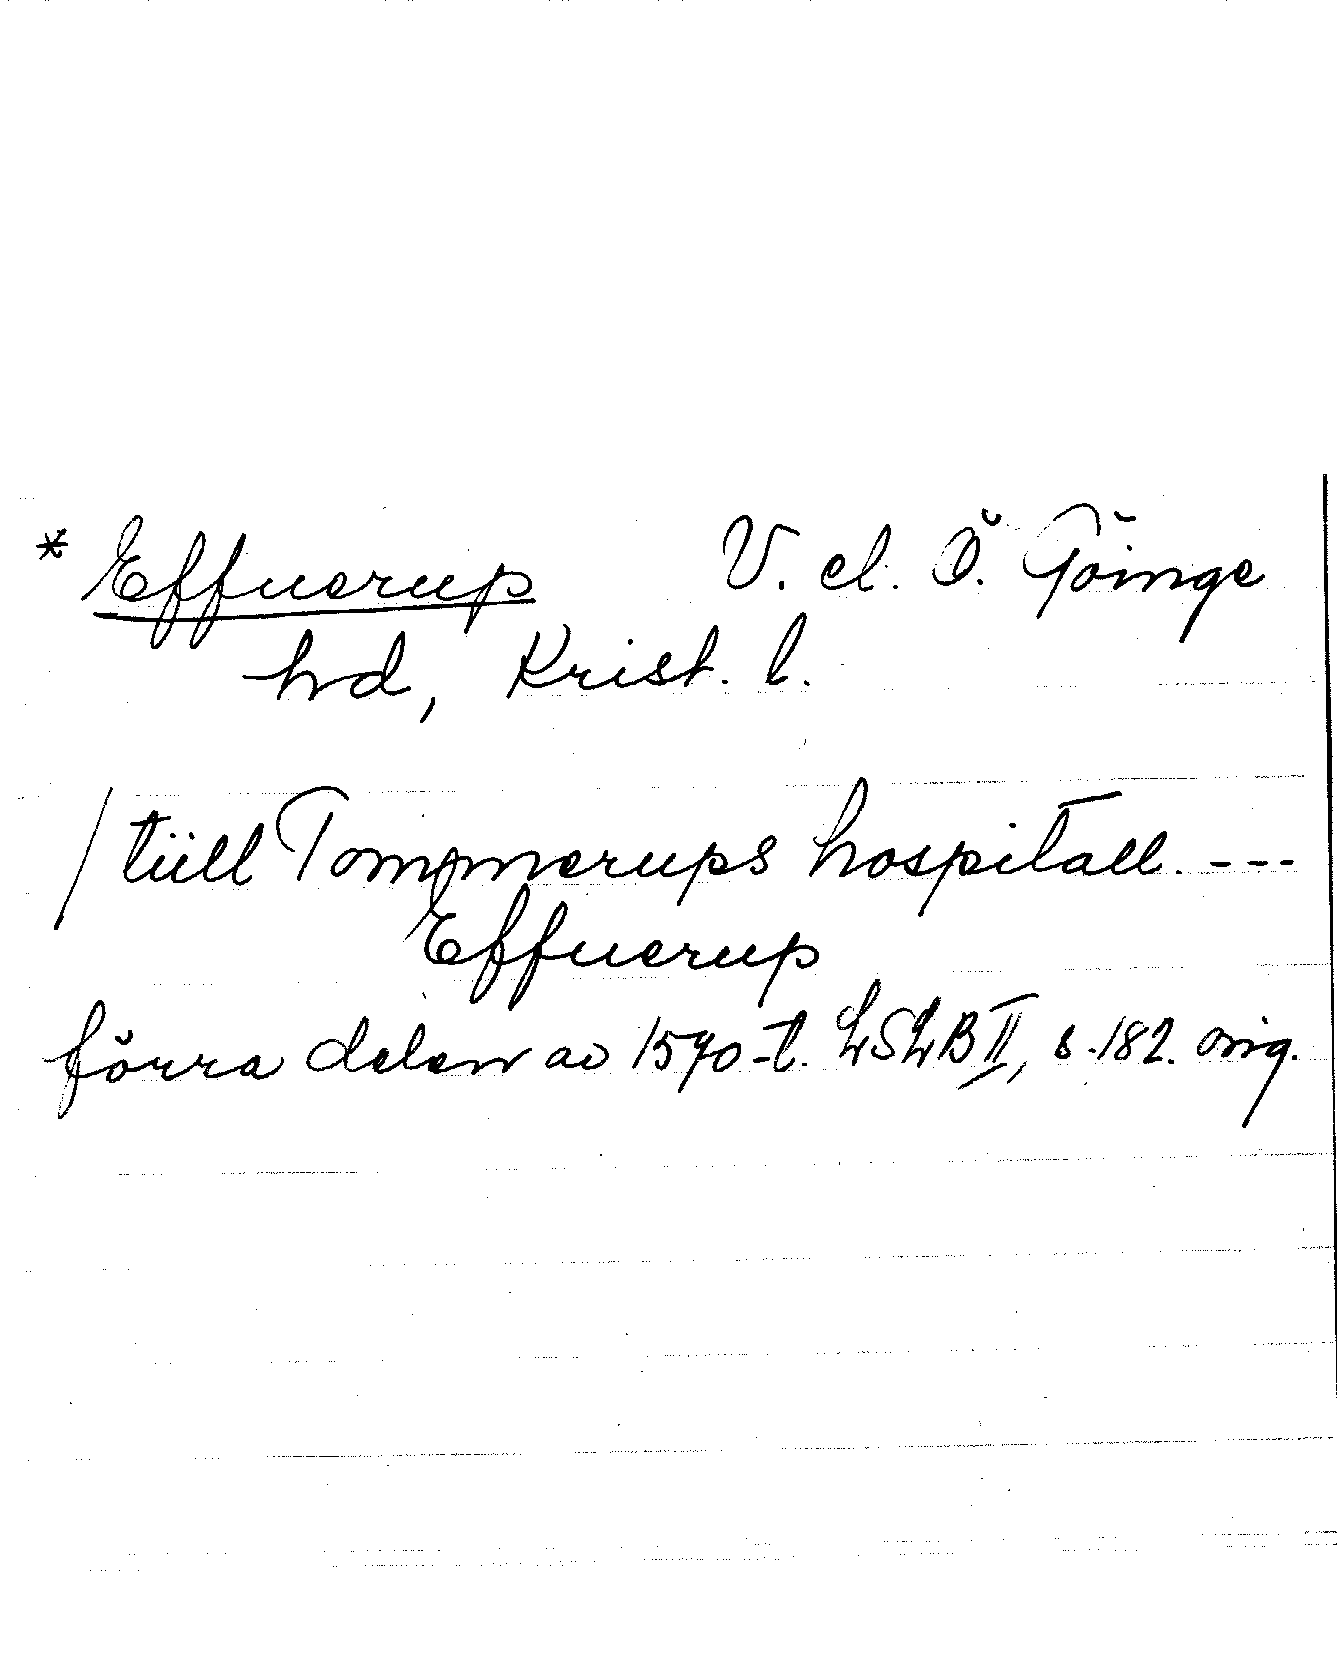 * Effuerup V. el. Ö. Göinge
hd, Krist. l.
/ tüll Tommerups hospitall. ---
Effuerup
förra delen av 1570-t. LSLB II, s. 182. orig.